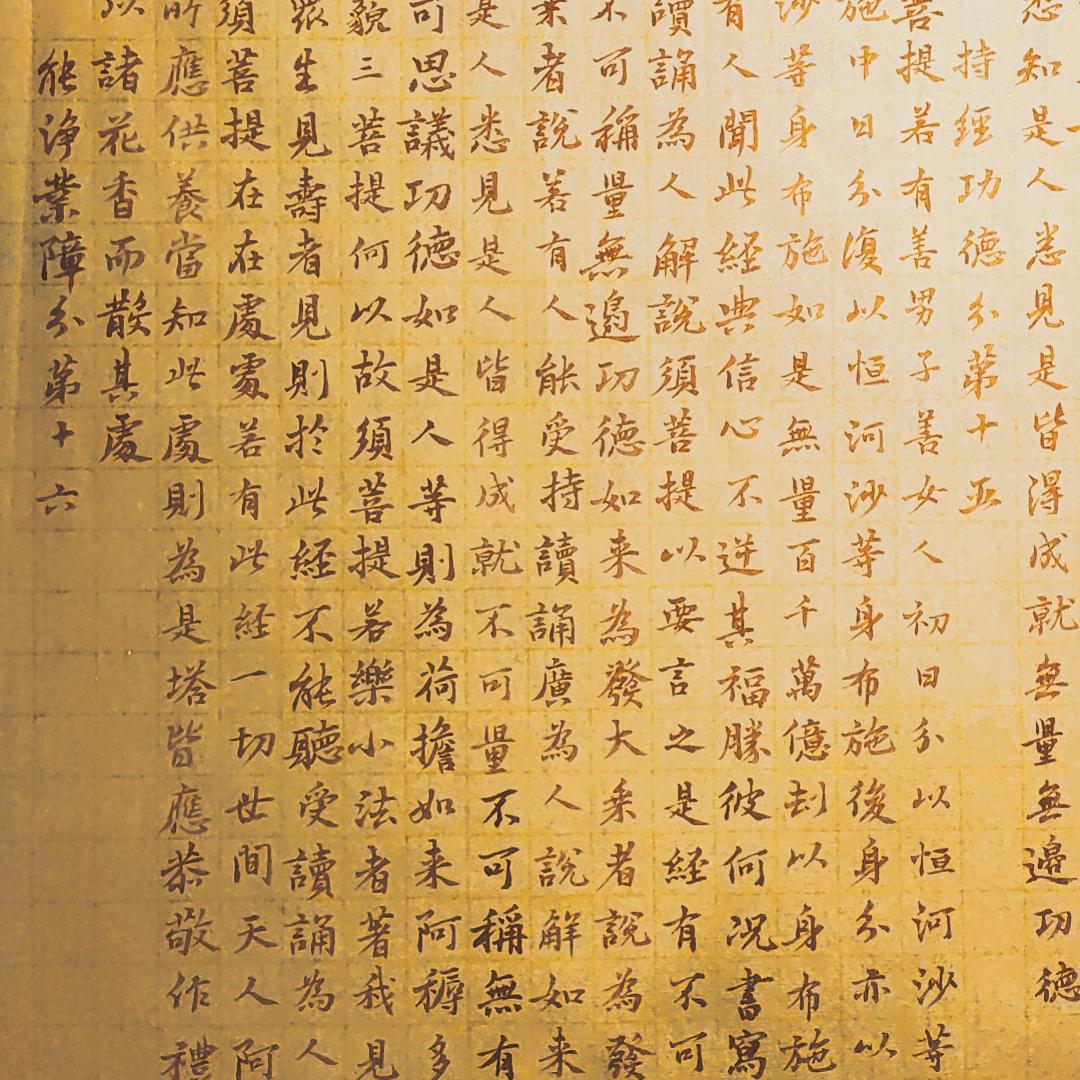 悉知是人悉見是皆得成就無量無邊功德
持經功德分第十五
菩提若有善男子善女人初日分以恒河沙等
施中日分復以恒河沙等身布施後身分亦以
沙等身布施如是無量百千萬億刧以身布施
有人聞此經典信心不逆其福勝彼何況書寫
讀誦為人解說須菩提以要言之是經有不可
不可稱量無邊功德如来為發大乘者說為發
乘者說若有人能受持讀誦廣為人說解如来
是人悉見是人皆得成就不可量不可稱無有
可思議功德如是人等則為荷擔如来阿耨多
藐三菩提何以故須菩提若樂小法者著我見
眾生見壽者見則於此經不能聽受讀誦為人
須菩提在在處處若有此經一切世間天人阿
所應供養當知此處則為是塔皆應恭敬作禮
以諸花香而散其處
能淨業障分第十六